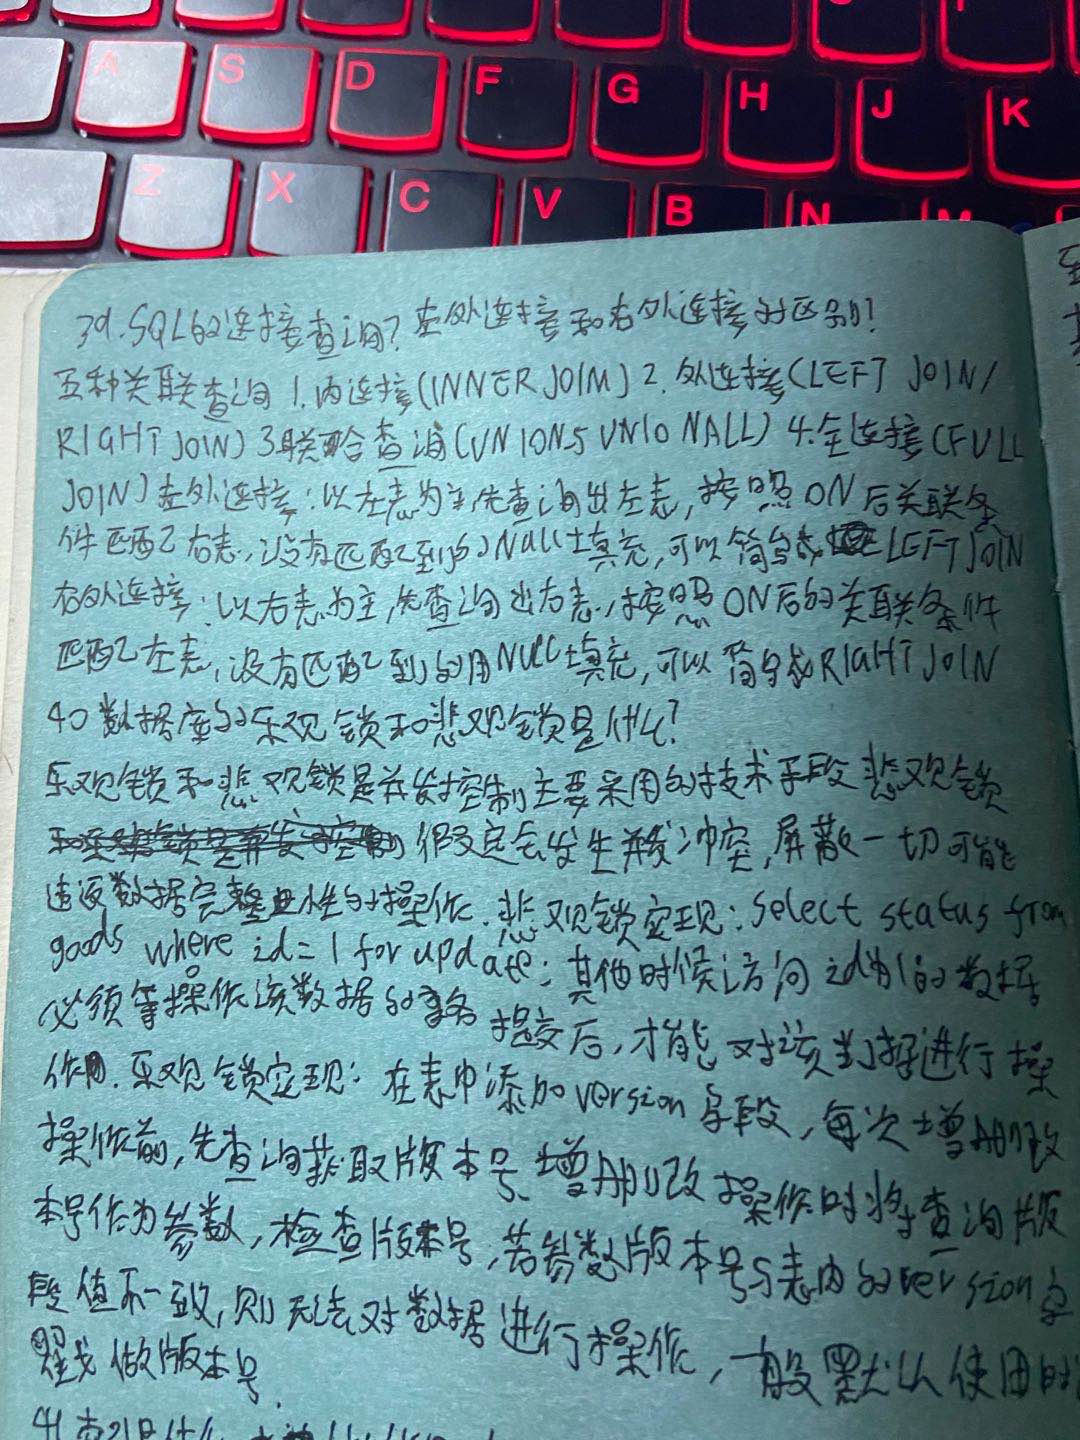 A S D F G H J K
Z X C V B N M
39.SQL的连接查询?左外连接和右外连接的区别?
五种关联查询 1.内连接(INNER JOIM) 2.外连接(LEFT JOIN/
RIGHT JOIN) 3联合查询(UNION5 UNIONALL) 4.全连接(FULL
JOIN) 左外连接:以左表为主,先查询出左表,按照ON后关联条
件匹配右表,没有匹配到的Null填充,可以简写成LEFT JOIN
右外连接:以右表为主,先查询出右表,按照ON后的关联条件
匹配左表,没有匹配到的用NULL填充,可以简写成RIGHT JOIN
40数据库的乐观锁和悲观锁是什么?
乐观锁和悲观锁是并发控制主要采用的技术手段 悲观锁
假定会发生并发冲突,屏蔽一切可能
违反数据完整性的操作.悲观锁实现:select status from
goods where id=1 for update;其他时候访问id为1的数据
必须等操作该数据的事务提交后,才能对该数据进行操
作.乐观锁实现:在表中添加version字段,每次增删改
操作前,先查询获取版本号、增删改操作时将查询版
本号作为参数,检查版本号,若参数版本号与表内的version字
段值不一致,则无法对数据进行操作,一般默认使用时
戳做版本号.
41